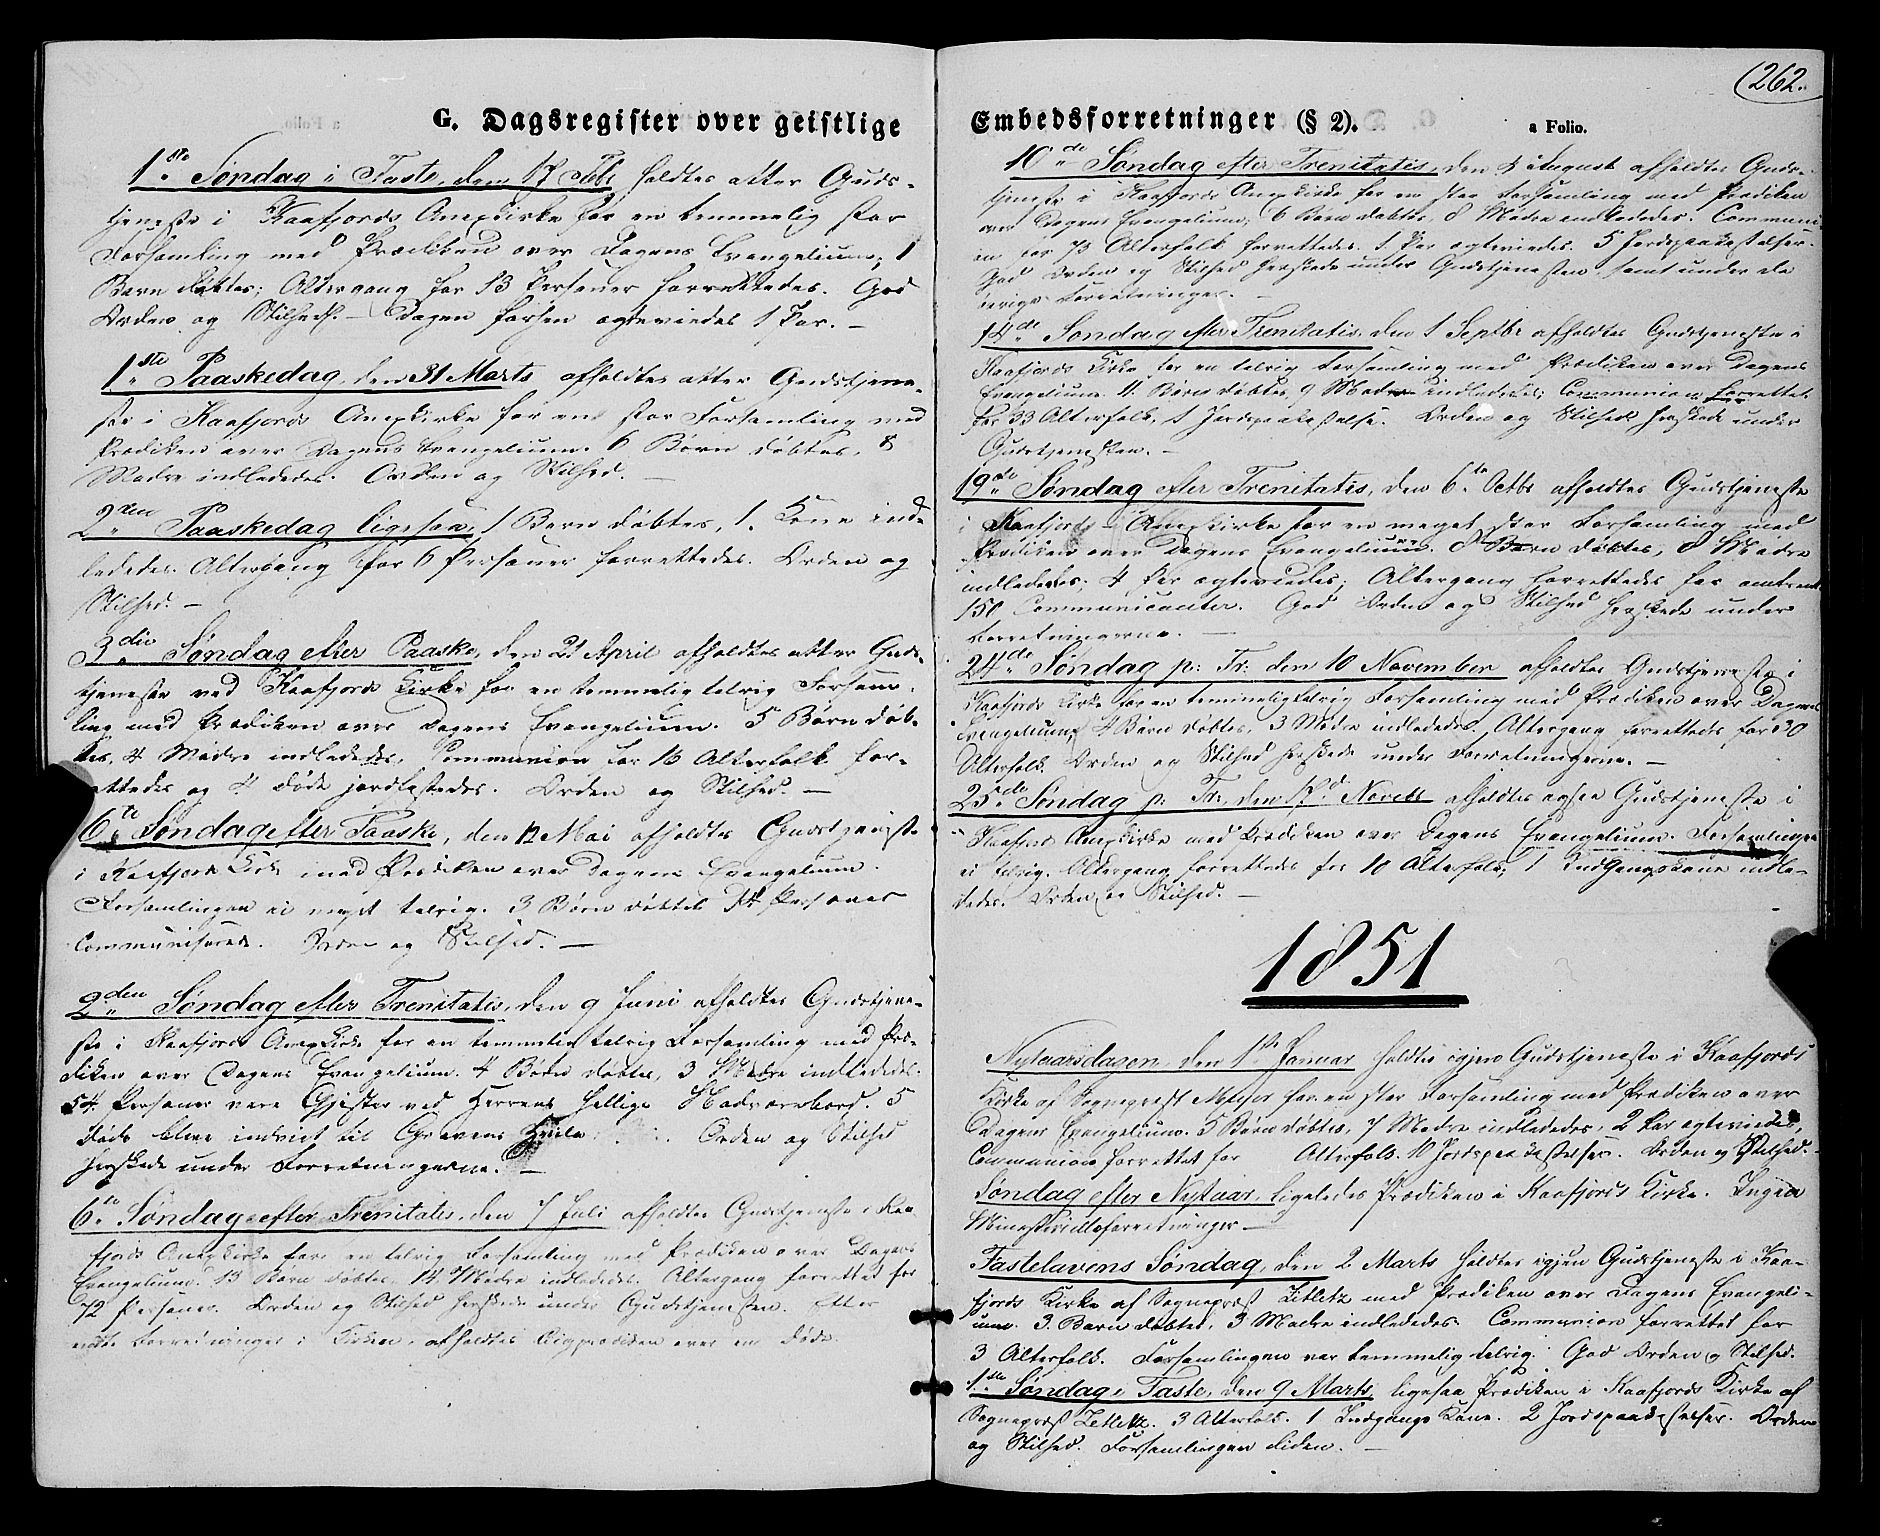 262.
G. Dagsregister over geistlige
1ste Søndag i Faste, den 17 Febr holdtes atter Guds-
tjeneste i Kaafjords Anexkirke for en temmelig stor
Forsamling med Prædiken over Dagens Evangelium, 1
Barn døbtes; Altergang for 13 Personer forrettedes. God
Orden og Stilhed. — Dagen forhen egteviedes 1 Par. —
1ste Paaskedag, den 31 Marts afholdtes atter Gudstjene-
ste i Kaafjords Anexkirke for en stor Forsamling med
Prædiken over Dagens Evangelium. 6 Børn døbtes, 8
Mødre indlededes. Orden og Stilhed. —
2den Paaskedag ligesaa, 1 Barn døbtes, 1 Kone ind-
lededes. Altergang for 6 Personer forrettedes. Orden og
Stilhed. —
3die Søndag efter Paaske, den 21 April afholdtes atter Guds-
tjeneste ved Kaafjords Kirke for en temmelig talrig Forsam-
ling med Prædiken over Dagens Evangelium. 5 Børn døb-
tes, 4 Mødre indlededes, Communion for 13 Alterfolk for-
rettedes og 4 Døde jordfæstedes. Orden og Stilhed. —
6te Søndag efter Paaske, den 12 Mai afholdtes Gudstjeneste
i Kaafjords Kirke med Prædiken over Dagens Evangelium.
Forsamlingen ei meget talrig. 3 Børn døbtes 34 Personer
communiserede. Orden og Stilhed. —
2den Søndag efter Trenitatis, den 9 Juni afholdtes Gudstjene-
ste i Kaafjords Anexkirke for en temmelig talrig Forsamling med Præ-
diken over Dagens Evangelium. 4 Børn døbtes, 3 Mødre indlededes.
54 Personer vare Gjester ved Herrens hellige Nadverebord. 5
Døde bleve indviet til Gravens Hvile. Orden og Stilhed
herskede under Forretningerne. —
6te Søndag efter Trenitatis, den 7 Juli afholdtes Gudstjeneste i Kaa
fjords Anexkirke for en talrig Forsamling med Prædiken over Dagens
Evangelium. 13 Børn døbtes, 14 Mødre indlededes. Altergang forrettet for
72 Personer. Orden og Stilhed herskede under Gudstjenesten. Efter
endte Forretninger i Kirken, afholdtes Ligprædiken over en Død.
Embedsforretninger (§ 2).
a Folio.
10de Søndag efter Trenitatis, den 4 August afholdtes Guds-
tjeneste i Kaafjords Anexkirke for en stor Forsamling med Prædiken
over Dagens Evangelium, 6 Børn døbtes, 8 Mødre indlededes. Communi-
on for 73 Alterfolk forrettedes. 1 Par egteviedes. 5 Jordspaakastelser.
God Orden og Stilhed herskede under Gudstjenesten samt under de
øvrige Forretninger. —
14de Søndag efter Trenitatis, den 1 Septbr afholdtes Gudstjeneste i
Kaafjords Kirke for en talrig Forsamling med Prædiken over Dagens
Evangelium. 11 Børn døbtes, 9 Mødre indlededes; Communion forrettet
for 33 Alterfolk, 1 Jordspaakastelse. Orden og Stilhed herskede under
Gudstjenesten. —
19de Søndag efter Trenitatis, den 6te Octbr afholdtes Gudstjeneste
i Kaafjords Anexkirke for en meget stor Forsamling med
Prædiken over Dagens Evangelium. 8 Børn døbtes, 8 Mødre
indlededes; 4 Par egteviedes; Altergang forrettedes for omtrent
150 Communicanter. God Orden og Stilhed herskede under
Forretningerne. —
24de Søndag p: Tr: den 10 November afholdtes Gudstjeneste i
Kaafjords Kirke for en temmelig talrig Forsamling med Prædiken over Dagens
Evangelium, 4 Børn døbtes, 3 Mødre indlededes. Altergang forrettedes for 30
Alterfolk. Orden og Stilhed herskede under Forretningerne. —
25de Søndag p: Tr:, den 17d Novebr afholdtes ogsaa Gudstjeneste i
Kaafjords Anexkirke med Prædiken over Dagens Evangelium. Forsamlingen
ei talrig. Altergang forrettedes for 10 Alterfolk; 1 Indgangskone indle-
dedes. Orden og Stilhed. —
1851
Nytaarsdagen, den 1ste Januar holdtes igjen Gudstjeneste i Kaafjords
Kirke af Sognepræst for en stor Forsamling med Prædiken over
Dagens Evangelium. 5 Børn døbtes, 7 Mødre indlededes, 2 Par egteviedes,
Communion forrettet for Alterfolk. 10 Jordspaakastelser. Orden og Stilhed.
Søndag efter Nytaar, ligeledes Prædiken i Kaafjords Kirke. Ingen
Ministerialforretninger. —
Fastelavens Søndag, den 2 Marts holdtes igjen Gudstjeneste i Kaa-
fjords Kirke af Sognepræst Zetlitz med Prædiken over Dagens Evangeli-
um. 3 Børn døbtes, 3 Mødre indlededes. Communion forrettet for
3 Alterfolk. Forsamlingen var temmelig talrig. God Orden og Stilhed.
1ste Søndag i Faste, den 9 Marts, ligesaa Prædiken i Kaafjords Kirke af
Sognepræst Zetlitz. 3 Alterfolk. 1 Indgangs Kone. 2 Jordspaakastelser. Orden
og Stilhed. Forsamlingen liden. —